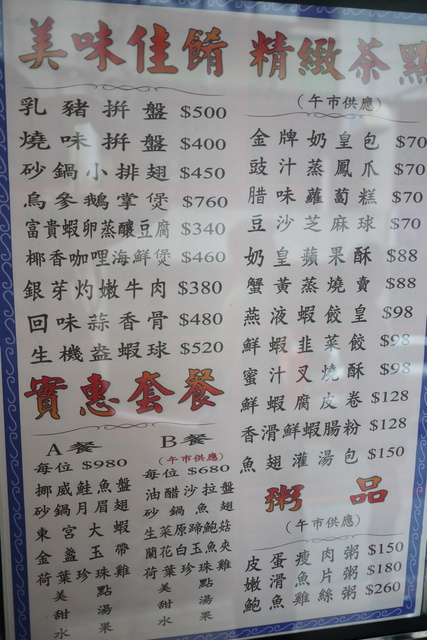 美味佳餚
乳豬拼盤 $500
燒味拼盤 $400
砂鍋小排翅 $450
烏參鵝掌煲 $760
富貴蝦卵蒸釀豆腐 $340
椰香咖哩海鮮煲 $460
銀芽灼嫩牛肉 $380
回味蒜香骨 $480
生機盎蝦球 $520
實惠套餐
A餐
每位 $980
挪威鮭魚盤
砂鍋月眉翅
東宮大蝦
金盞玉帶
荷葉珍珠雞
美點
甜湯
水果
B餐
(午市供應)
每位 $680
油醋沙拉盤
砂鍋魚翅
生菜原蹄鮑菇
蘭花白玉魚夾
荷葉珍珠雞
美點
甜湯
水果
精緻茶點
(午市供應)
金牌奶皇包 $70
豉汁蒸鳳爪 $70
腊味蘿蔔糕 $70
豆沙芝麻球 $70
奶皇蘋果酥 $88
蟹黃蒸燒賣 $88
燕液蝦餃皇 $98
鮮蝦韭菜餃 $98
蜜汁叉燒酥 $98
鮮蝦腐皮卷 $128
香滑鮮蝦腸粉 $128
魚翅灌湯包 $150
粥品
(午市供應)
皮蛋瘦肉粥 $150
嫩滑魚片粥 $180
鮑魚雞絲粥 $260